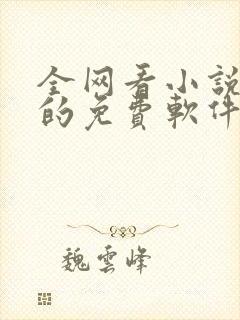 全网看小説
的免費軟件
魏雲峰